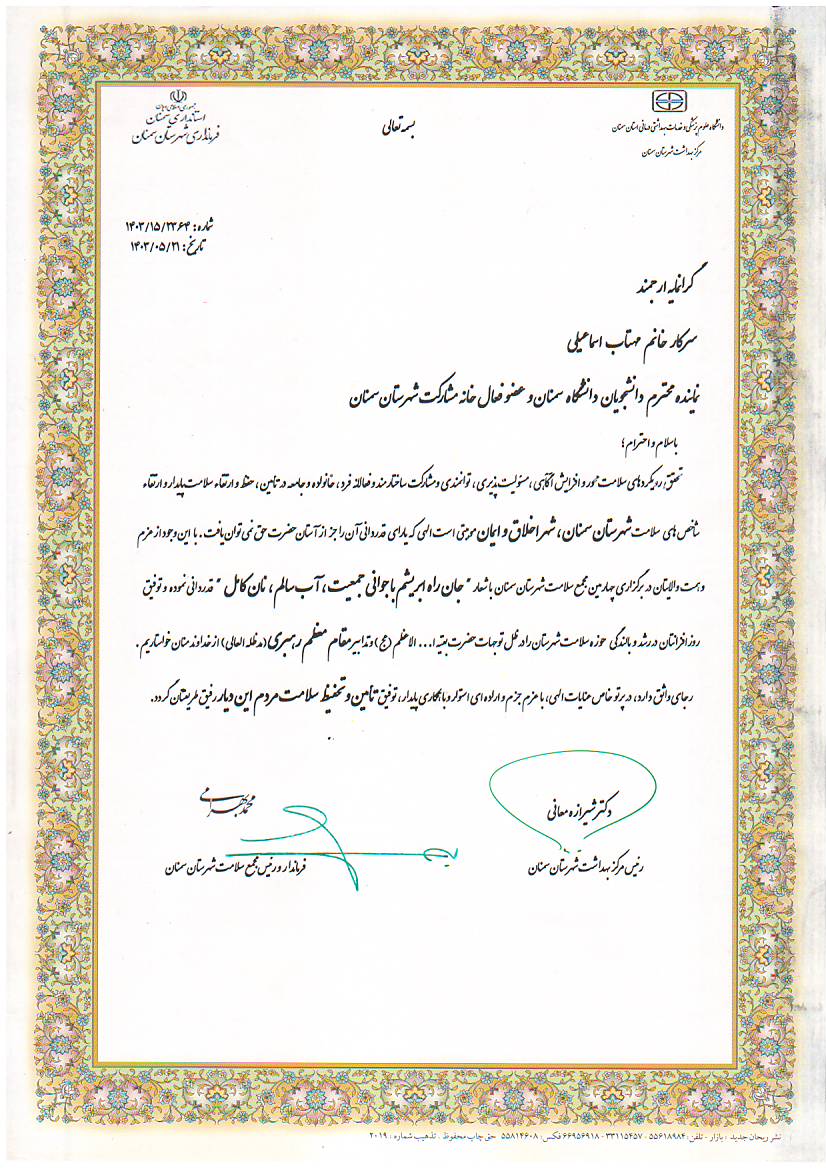 بسمه تعالی
دانشگاه علوم پزشکی و خدمات بهداشتی درمانی استان سمنان
مرکز بهداشت شهرستان سمنان
جمهوری اسلامی ایران
استانداری سمنان
فرمانداری شهرستان سمنان
شماره: ۱۴۰۳/۱۵/۲۳۶۴
تاریخ: ۱۴۰۳/۰۵/۲۱
گرانمایه ارجمند
سرکار خانم مهتاب اسماعیلی
نماینده محترم دانشجویان دانشگاه سمنان و عضو فعال خانه مشارکت شهرستان سمنان
باسلام و احترام؛
تحقق رویکردهای سلامت محور و افزایش آگاهی، مسئولیت پذیری، توانمندی و مشارکت ساختارمند و فعالانه فرد، خانواده و جامعه در تامین، حفظ و ارتقاء سلامت پایدار و ارتقاء
شاخص های سلامت شهرستان سمنان، شهر اخلاق و ایمان موهبتی است الهی که یارای قدردانی آن را جز از آستان حضرت حق نمی توان یافت. با این وجود از عزم
و همت والایتان در برگزاری چهارمین مجمع سلامت شهرستان سمنان با شعار "جان راه ابریشم با جوانی جمعیت، آب سالم، نان کامل" قدردانی نموده و توفیق
روز افزانتان در رشد و بالندگی حوزه سلامت شهرستان را در ظل توجهات حضرت بقیه ا... الاعظم (عج) و تدابیر مقام معظم رهبری (مدظله العالی) از خداوند منان خواستاریم.
رجای واثق دارد، در پرتو خاص عنایات الهی، با عزم جزم و اراده ای استوار و با همکاری پایدار، توفیق تامین و تحفیظ سلامت مردم این دیار رفیق طریقتان گردد.
دکتر شیرازه معانی
رئیس مرکز بهداشت شهرستان سمنان
محمد بهرامی
فرماندار و رئیس مجمع سلامت شهرستان سمنان
نشر ریحان جدید : بازار - تلفن : ۵۵۶۱۸۹۸۴ - ۳۳۱۱۵۴۵۷ - ۶۶۹۵۶۹۱۸ فکس : ۵۵۸۱۴۶۰۸ حق چاپ محفوظ . تذهیب شماره : ۲۰۱۹